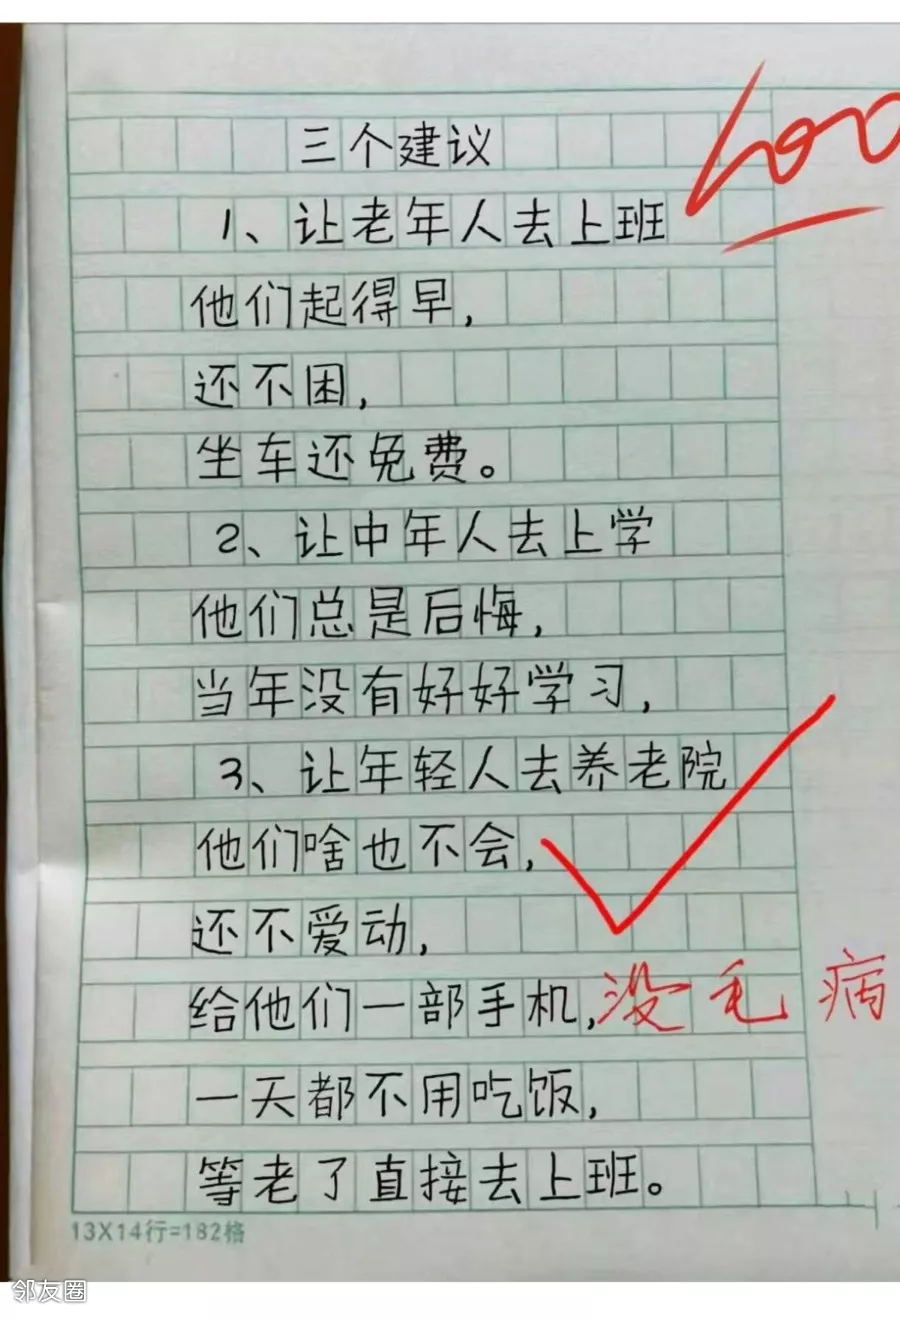 三个建议
100
1、让老年人去上班
他们起得早,
还不困,
坐车还免费。
2、让中年人去上学
他们总是后悔,
当年没有好好学习,
3、让年轻人去养老院
他们啥也不会,
还不爱动,
给他们一部手机,没毛病
一天都不用吃饭,
等老了直接去上班。
13X14行=182格
邻友圈